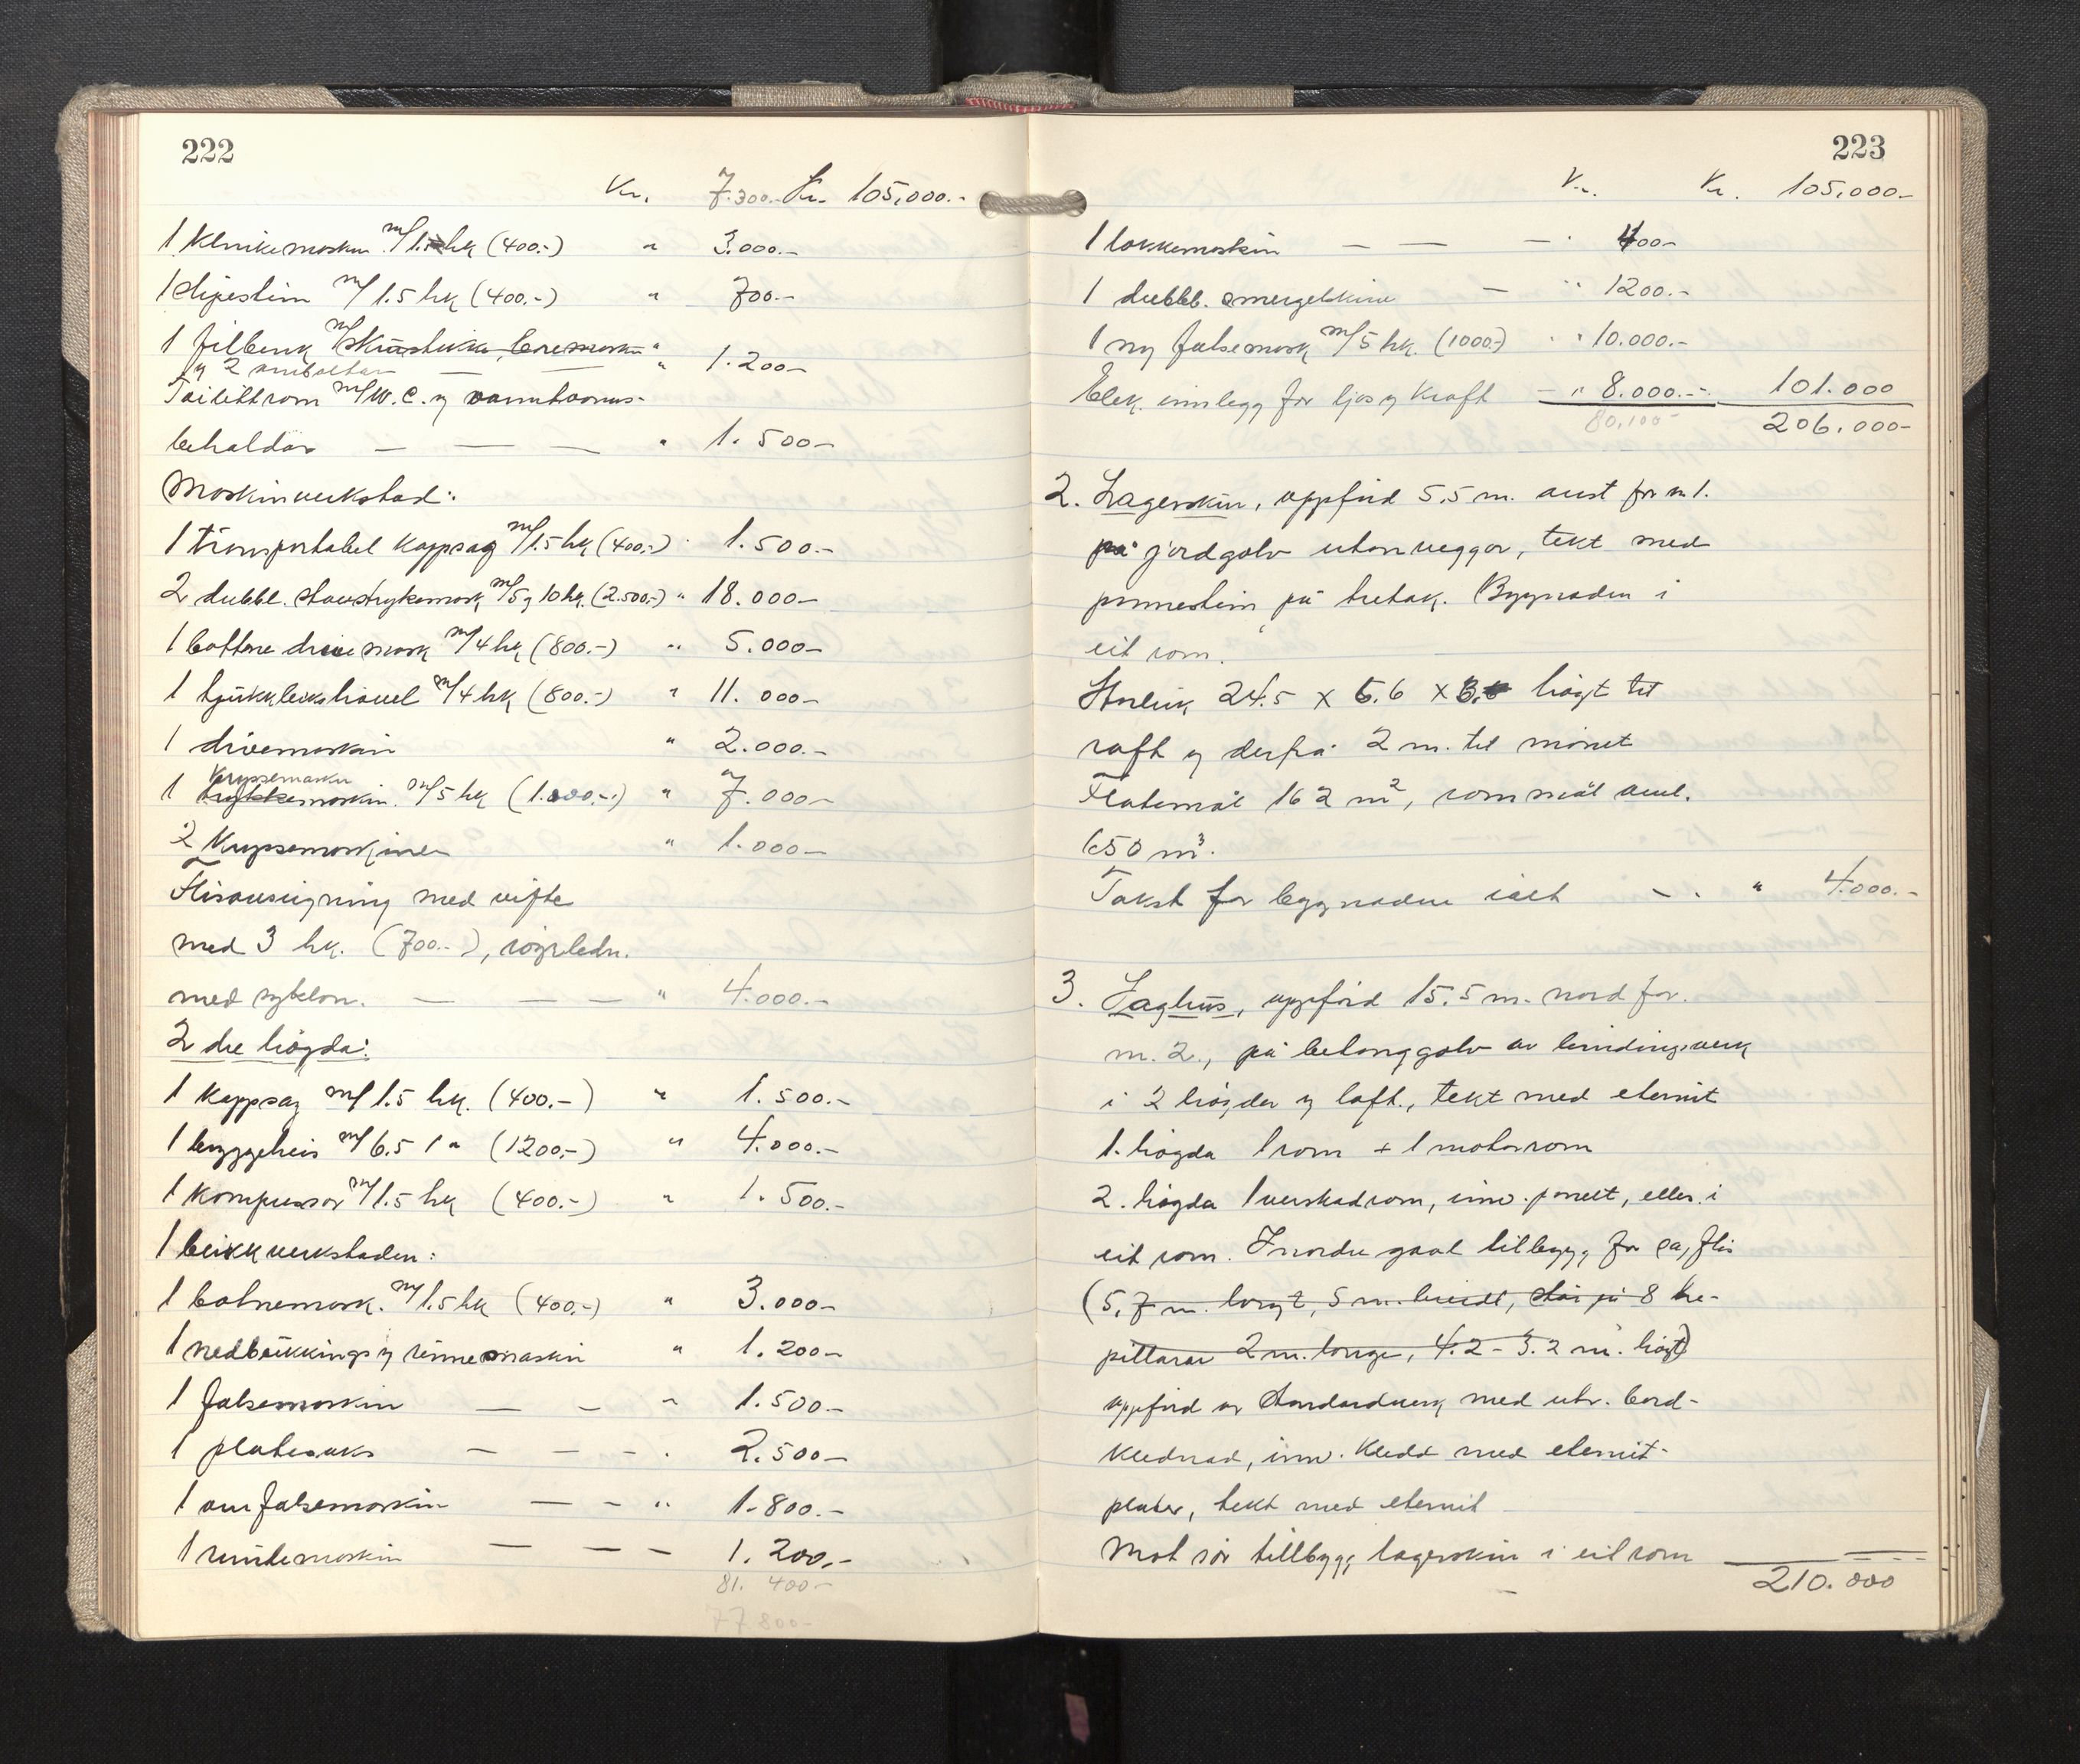 222
Kr. 7.300.- Kr. 105,000.-
1 Klinkemaskin m/1.5 hk (400.-) " 3.000.-
1 slipestein m/1.5 hk (400.-) " 700.-
1 filbenk m/skrustikke, boremaskin "
og 2 amboltar — — " 1.200-
Toilettrom m/W.C. og varmtvanns-
behaldar — — — " 1.500-
Maskinverkstad:
1 transportabel kappsag m/1.5 hk (400.-) " 1.500.-
2 dubbl. stavstrykemask m/5 og 10 hk. (2.500.-) " 18.000-
1 bottne drive mask m/4 hk (800.-) " 5.000-
1 tjukkleikshøvel m/4 hk (800.-) " 11.000-
1 drivemaskin " 2.000.-
Krypsemaskin
1 trykkemaskin. m/5 hk (1.000.-) " 7.000-
2 Krypsemaskiner " 1.000-
Flisavsugning med vifte
med 3 hk. (700.-), røyrledn.
med syklon. — — — " 4.000.-
2 dre høgda:
1 Kappsag m/1.5 hk. (400.-) " 1.500.-
1 byggeheis m/6.5 1 " (1200.-) " 4.000.-
1 Kompressor m/1.5 hk (400.-) " 1.500.-
I blikkverkstaden:
1 botnemask. m/1.5 hk (400.-) " 3.000-
1 nedbukkings og rønnemaskin " 1.200-
1 falsemaskin — - " 1.500-
1 platesaks — — - . 2.500-
1 omfalsemaskin — - " 1.800.-
1 rundemaskin — — — 1.200.-
81.400-
77800-
223
Kr. Kr. 105,000-
1 lokkemaskin — — — . 400-
1 dubbl. smergelskive — " 1200.-
1 ny falsemask m/5 hk. (1000.-) " 10.000.-
Elek. innlegg for ljos og kraft — " 8.000.- 101.000
80,100- 206.000-
2. Lagerskur, oppførd 5,5 m. aust for m 1.
på jordgolv utan veggar, tekt med
pannestein på tretak. Bygnaden i
eit rom.
Storleik 24.5 x 6.6 x 3. høgt til
raft og derfrå 2 m. til mønet
Flatemål 162 m², rommål auml.
650 m³.
Takst for bygnaden ialt - . " 4.000.-
3. Saghus, oppførd 15.5 m. nord for
m. 2., på betonggolv av bindingsverk
i 2 høgder og loft., tekt med eternit
1. høgda 1 rom + 1 motorrom
2. høgda 1 verkstadrom, innv. panelt, elles i
eit rom. I nordre gavl tilbygg for sag, flis
(5,7 m. langt, 5 m. breidt, står på 8 tre-
pillarar 2 m. lange, 4.2 - 3.2 m. høgt)
oppførd av standardverk med utv. bord-
klednad, innv. kledd med eternit-
plater, tekt med eternit
Mot sør tillbygg, lagerskur i eit rom
210.000